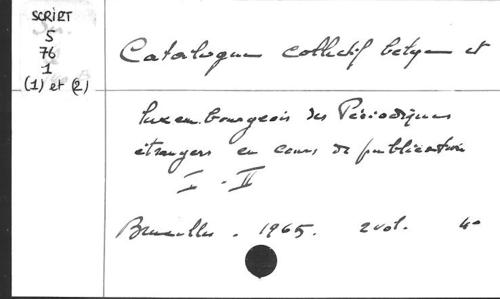 SCRIPT
5
76
1
(1) et (2)
Catalogue collectif belge et
luxembourgeois des Périodiques
étrangers en cours de publication
I - II
Bruxelles . 1965. 2 vol. 4°